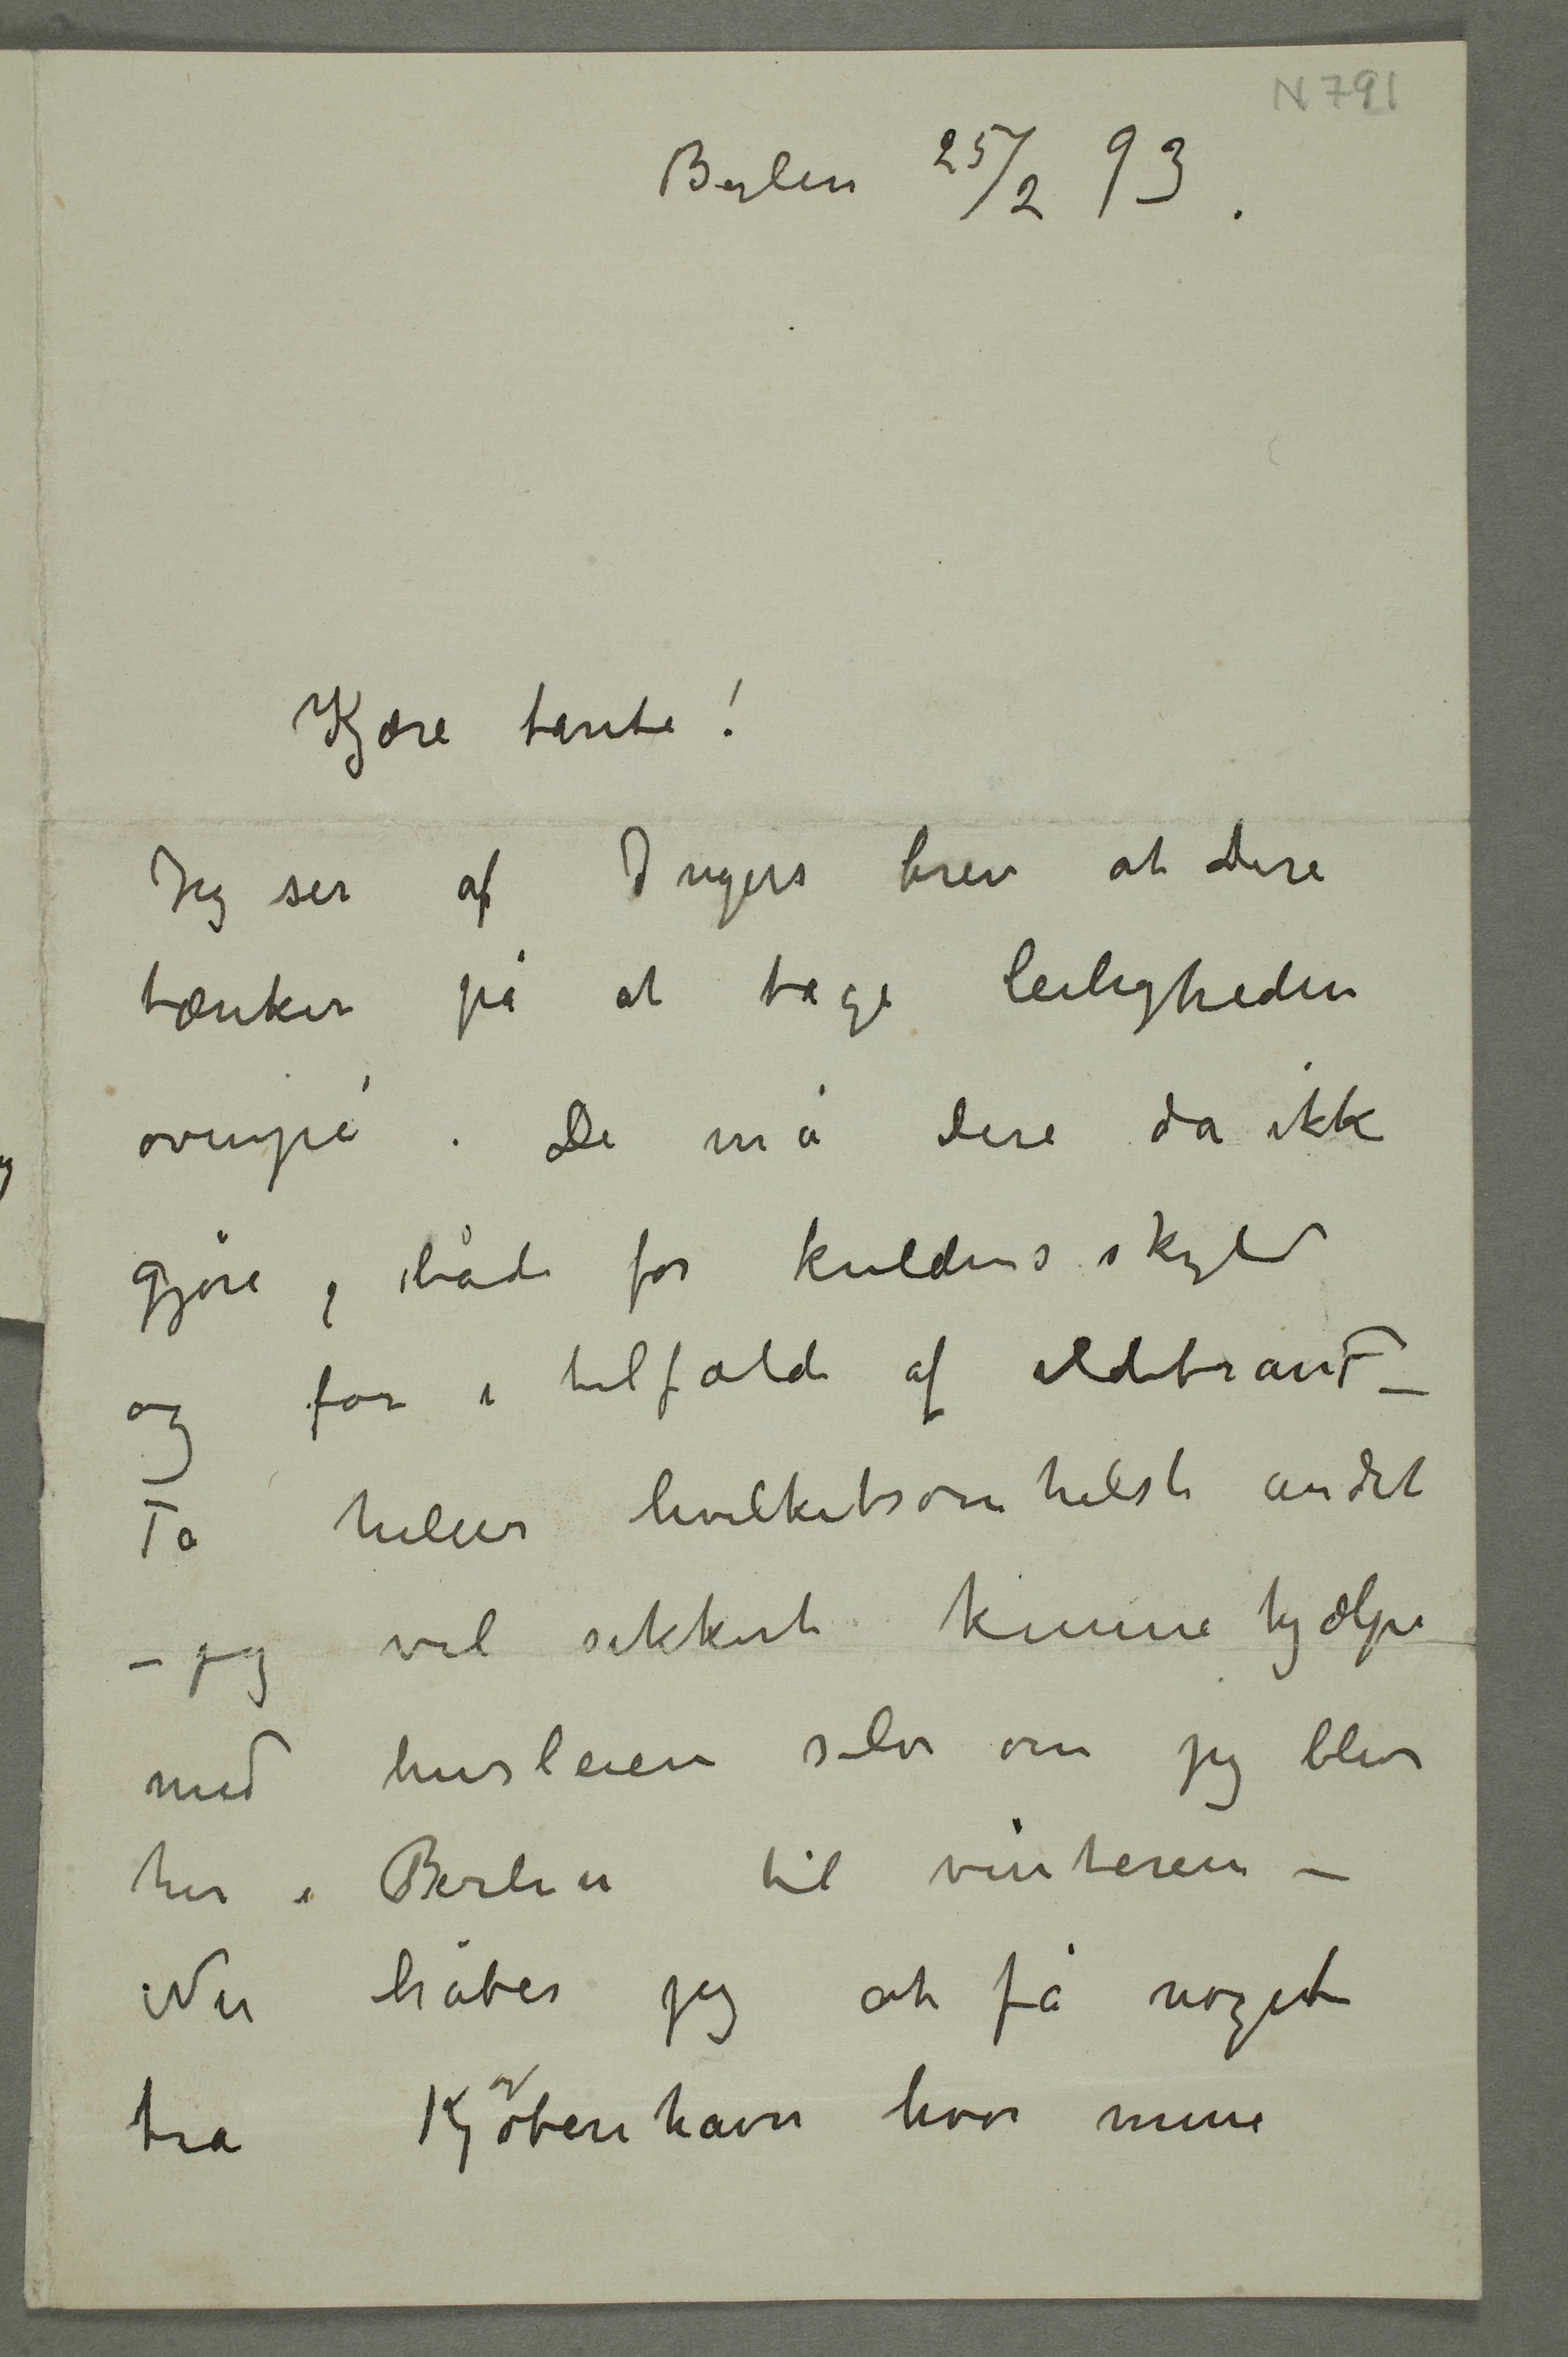 N 791
Berlin 25/2 93.
Kjære tante!
Jeg ser af Ingers brev at dere
tænker på at tage leiligheden
ovenpå. De må dere da ikke
gjöre, både for kuldens skyld
og for i tilfælde af ildebrand –
Ta heller hvilketsomhelst andet
– jeg vil sikkert kunne hjælpe
med husleien selv om jeg blir
her i Berlin til vinteren –
Nu håber jeg at få noget
fra Kjöbenhavn hvor mine